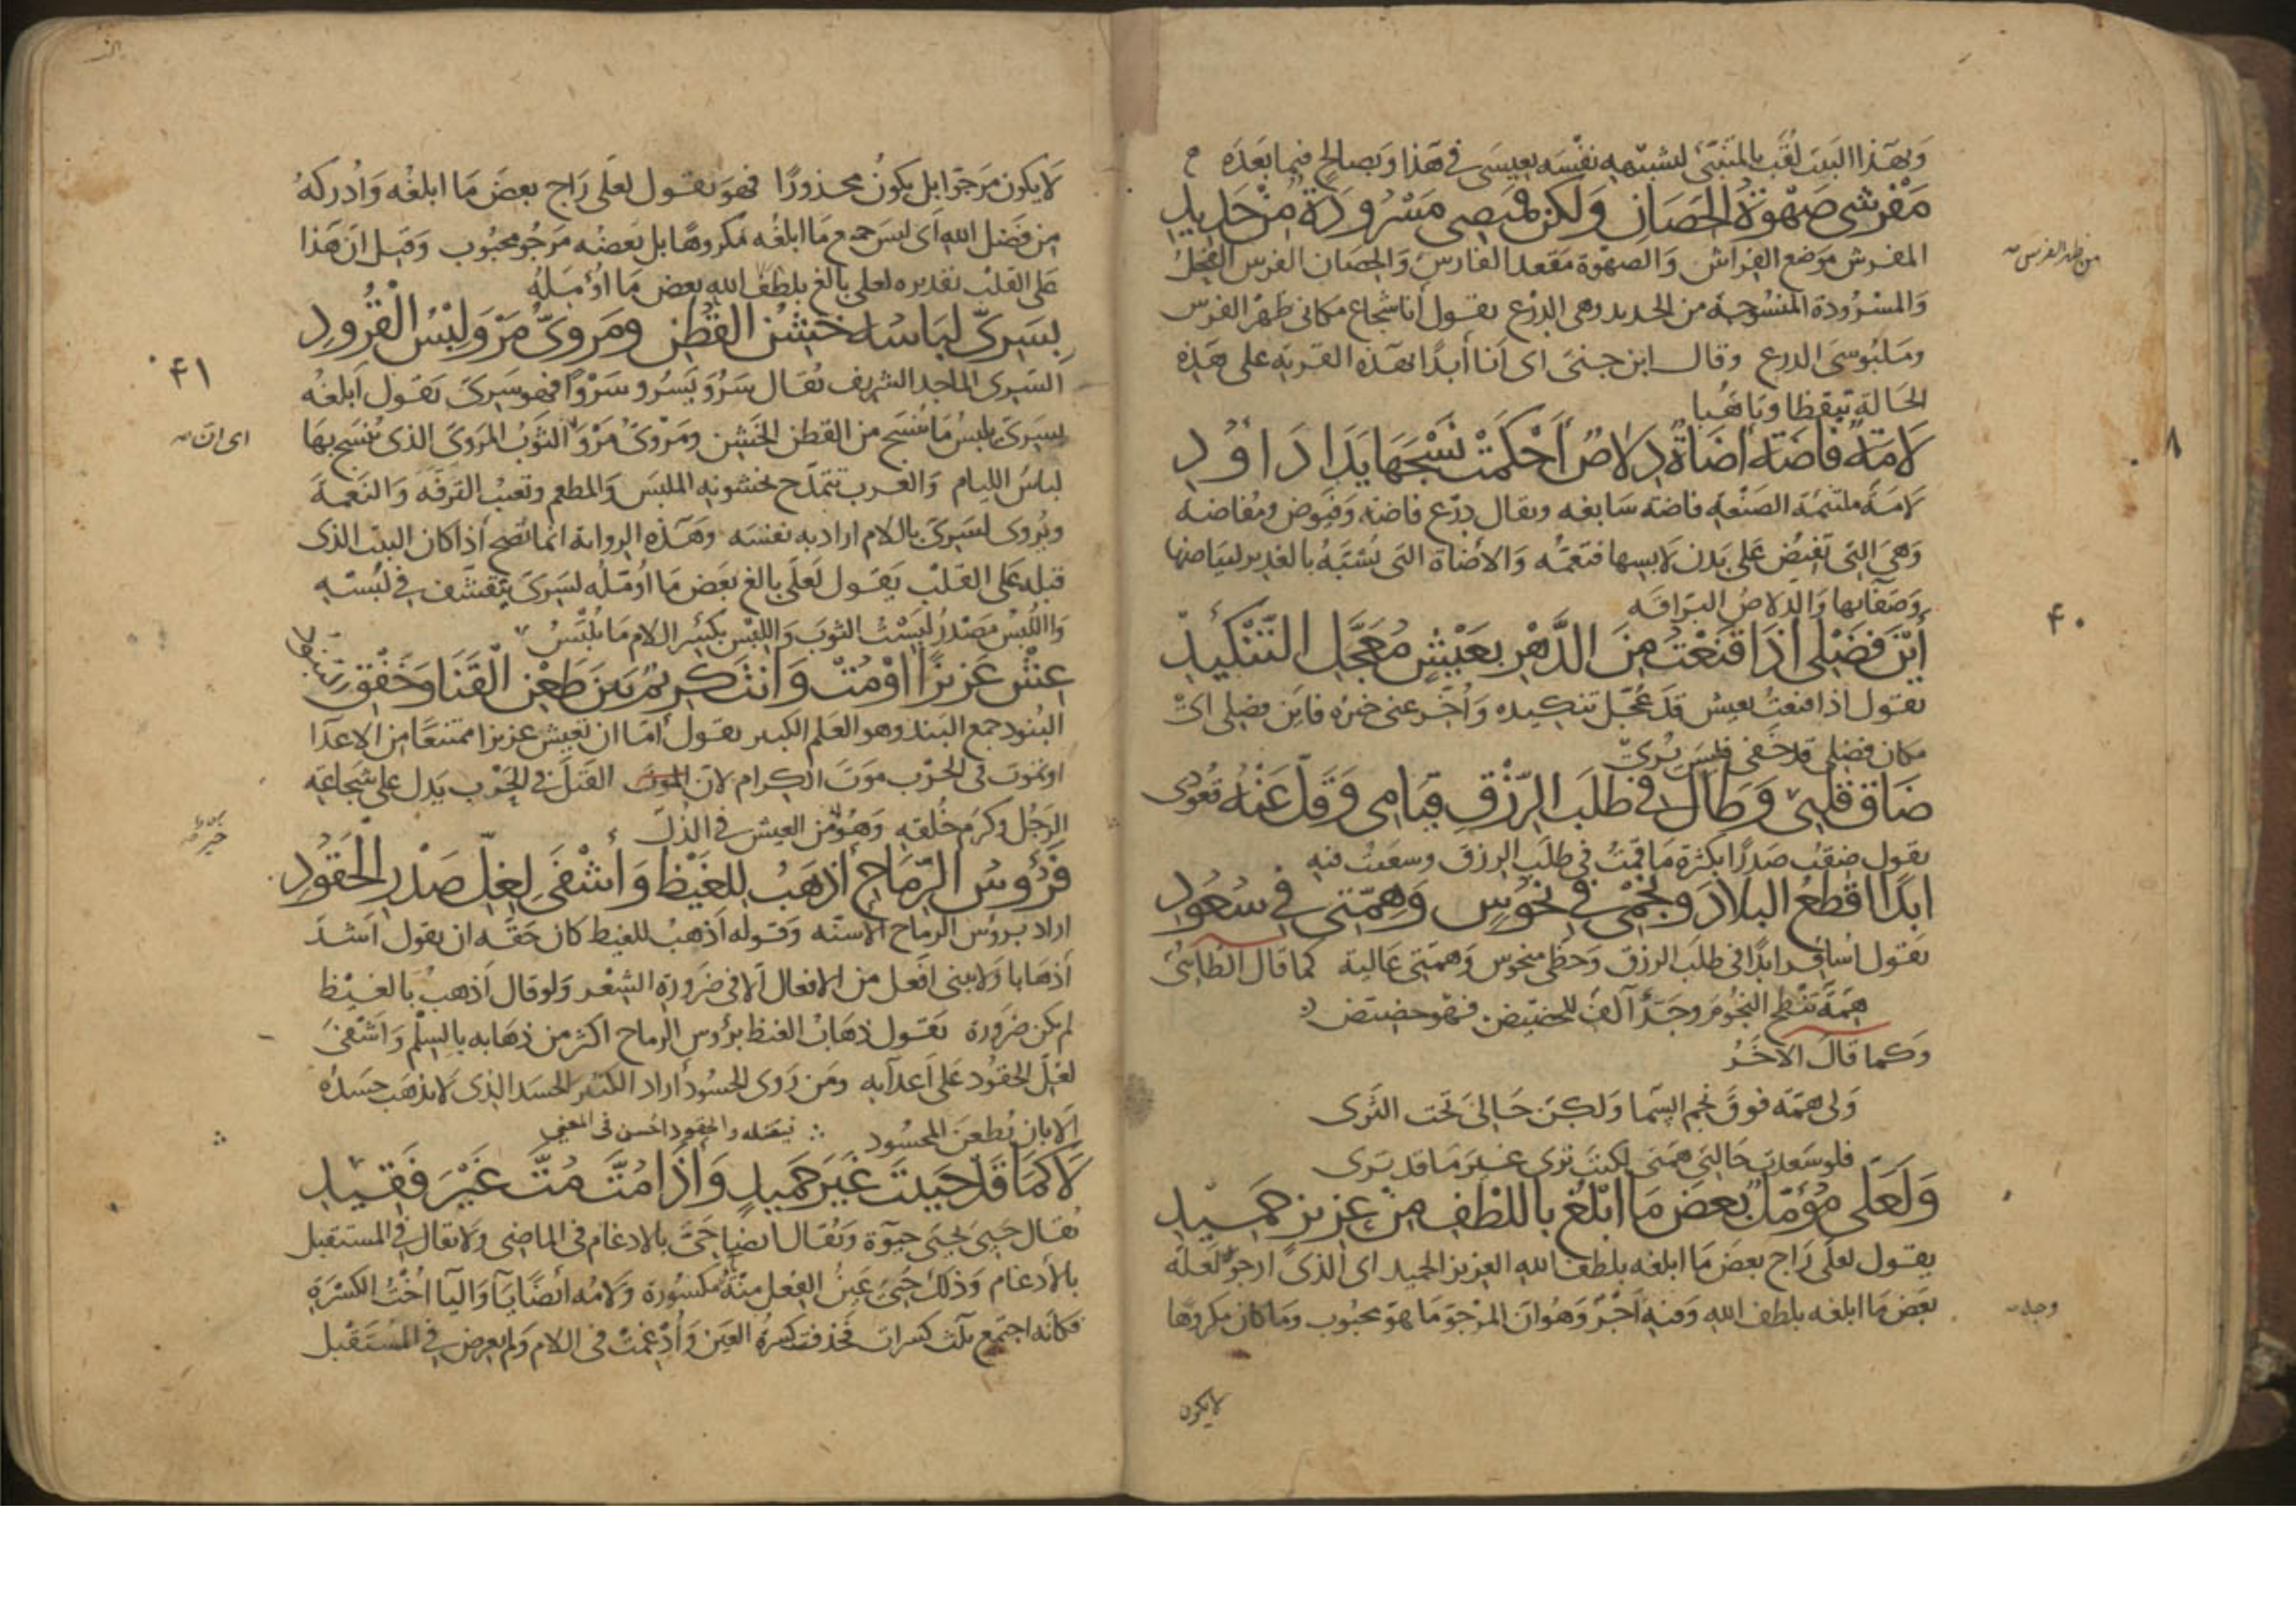 وبهذا البيت لقب بالمتنبي لتشبيهه نفسه بعيسى في هذا وبصالح فيما بعده
مَفْرشي صَهْوَةُ الحصَانِ وَلكنّ قميصي مَسْرُودَةٌ مِنْ حَدِيدِ
المفرش موضع الفراش والصهوة مقعد الفارس والحصان الفرس الفحل
من ظهر الفرس
والمسرودة المنسوجة من الحديد وهى الدرع يقول أنا شجاع مكاني ظهر الفرس
وملبوسى الدرع وقال ابن جنى اى انا أبدا بهذه القرية على هذه
الحالة تيقظا وتاهبا
لَامَةٌ فاضَةٌ أضَاةٌ دِلاصٌ أَحْكَمَتْ نَسْجَهَا يَدَا دَاوُدِ
٨
لامة ملتئمة الصنعة فاضة سابغة ويقال درع فاضة وفيوض ومفاضة
وهى التى تفيض على بدن لابسها فتعمه والاضاة التى تشبه بالغدير لبياضها
وصفائها والدلاص البراقة
أَيْنَ فَضْلى إذَا قَنَعْتُ مِنَ الدَّهْرِ بعَيْشٍ مُعَجَّلِ التَّنْكيدِ
٤٠
يقول اذا قنعت بعيش قد عجل تنكيده واخر عنى خيره فاين فضلى اى
مكان فضلى قد خفى فليس يرى
ضَاقَ قلبي وَطَالَ في طَلَبِ الرِّزْقِ قِيَامِي وَقَلَّ عَنْهُ قُعُودي
يقول ضقت صدرا بكثرة ما قمت في طلب الرزق وسعيت فيه
ابدًا اقْطَعُ البلادَ ونَجْمي في نُحُوسٍ وَهِمّتي في سُعُودِ
يقول اسافر ابدا فى طلب الرزق وحظى منحوس وهمتي عالية كما قال الطائى
همة تنطح النجوم وجد آلف للحضيض فهو حضيض
وكما قال الاخر
ولى همة فوق نجم السما ولكن حالى تحت الثرى
فلو سعدت حالتي همتى لكنت ترى غير ما قد ترى
وَلَعَلّي مُؤَمّلٌ بعضَ مَا ابْلُغُ باللُطْفِ مِنْ عزيزٍ حَمِيدِ
يقول لعلى راج بعض ما ابلغه بلطف الله العزيز الحميد اى الذى ارجوه لعله
بعض ما ابلغه بلطف الله وفيه آخر وهو ان المرجو ما هو محبوب وما كان مكروها
وجه
لايكون
لايكون مرجوا بل يكون محذورا فهو يقول لعلى راج بعض ما ابلغه وادركه
من فضل الله اى ليس جميع ما ابلغه مكروها بل بعضه مرجو محبوب وقيل ان هذا
على القلب تقديره لعلى بالغ بلطف الله بعض ما اؤمله
بِسَرِىٍّ لبَاسُه خَشِنُ القُطْنِ ومَروِىُّ مَرْوَ لِبْسُ الْقُرُودِ
٤١
السرى الماجد الشريف يقال سرو يسرو سروا فهو سرى يقول ابلغه
بسرى يلبس ما ينسج من القطن الخشن ومروى مرو الثوب المروى الذى ينسج بها
اى ان
لباس الليام والعرب تتمدح بخشونة الملبس والمطعم وتعيب الترفه والنعمة
ويروى لسرى بالام اراد به نفسه وهذه الرواية انما تصح اذا كان البيت الذى
قبله على القلب يقول لعلى بالغ بعض ما اؤمله لسرى يتقشف في لبسه
واللبس مصدر لبست الثوب واللبس بكسر الام ما يلبس
عِشْ عَزيزًا اوْ مُتْ وَانتَ كريمٌ بَينَ طَعْنِ الْقَنَا وَخَفْقِ البنود
البنود جمع البند وهو العلم الكبير يقول اما ان تعيش عزيزا ممتنعا من الاعدا
او تموت فى الحرب موت الكرام لان الموت القتل فى الحرب يدل على شجاعة
الرجل وكرم خلقه وهو من العيش في الذل
خير
فَرُؤُسُ الرّمَاحِ أَذهَبُ لِلغَيْظِ وَأشْفَى لِغِلِّ صَدْرِ الْحَقُودِ
اراد برؤس الرماح الاسنة وقوله اذهب للغيظ كان حقه ان يقول اشد
اذهابا ولا يبنى افعل من الافعال الا في ضرورة الشعر ولو قال اذهب بالغيظ
لم يكن ضرورة يقول ذهاب الغيظ برؤس الرماح اكثر من ذهابه بالسلم واشفى
لغل الحقود على اعدائه ومن روى الحسود اراد الكثير الحسد الذى لا يذهب حسده
الا بان يطعن المحسود فيقتله والحقود احسن فى المعنى
لَا كمَا قَدْ حَيِيتَ غَيرَ حَمِيدٍ وَإذَا مُتَّ مُتَّ غَيْرَ فَقِيدِ
يقال حيى يحيى حيوة ويقال ايضا حي بالادغام فى الماضى ولا يقال في المستقبل
بالادغام وذلك حيي عين الفعل منه مكسورة ولامه ايضا يا واليا اخت الكسرة
فكانه اجتمع ثلث كسرات فحذفت كسرة العين وادغمت فى اللام ولم يعرض في المستقبل